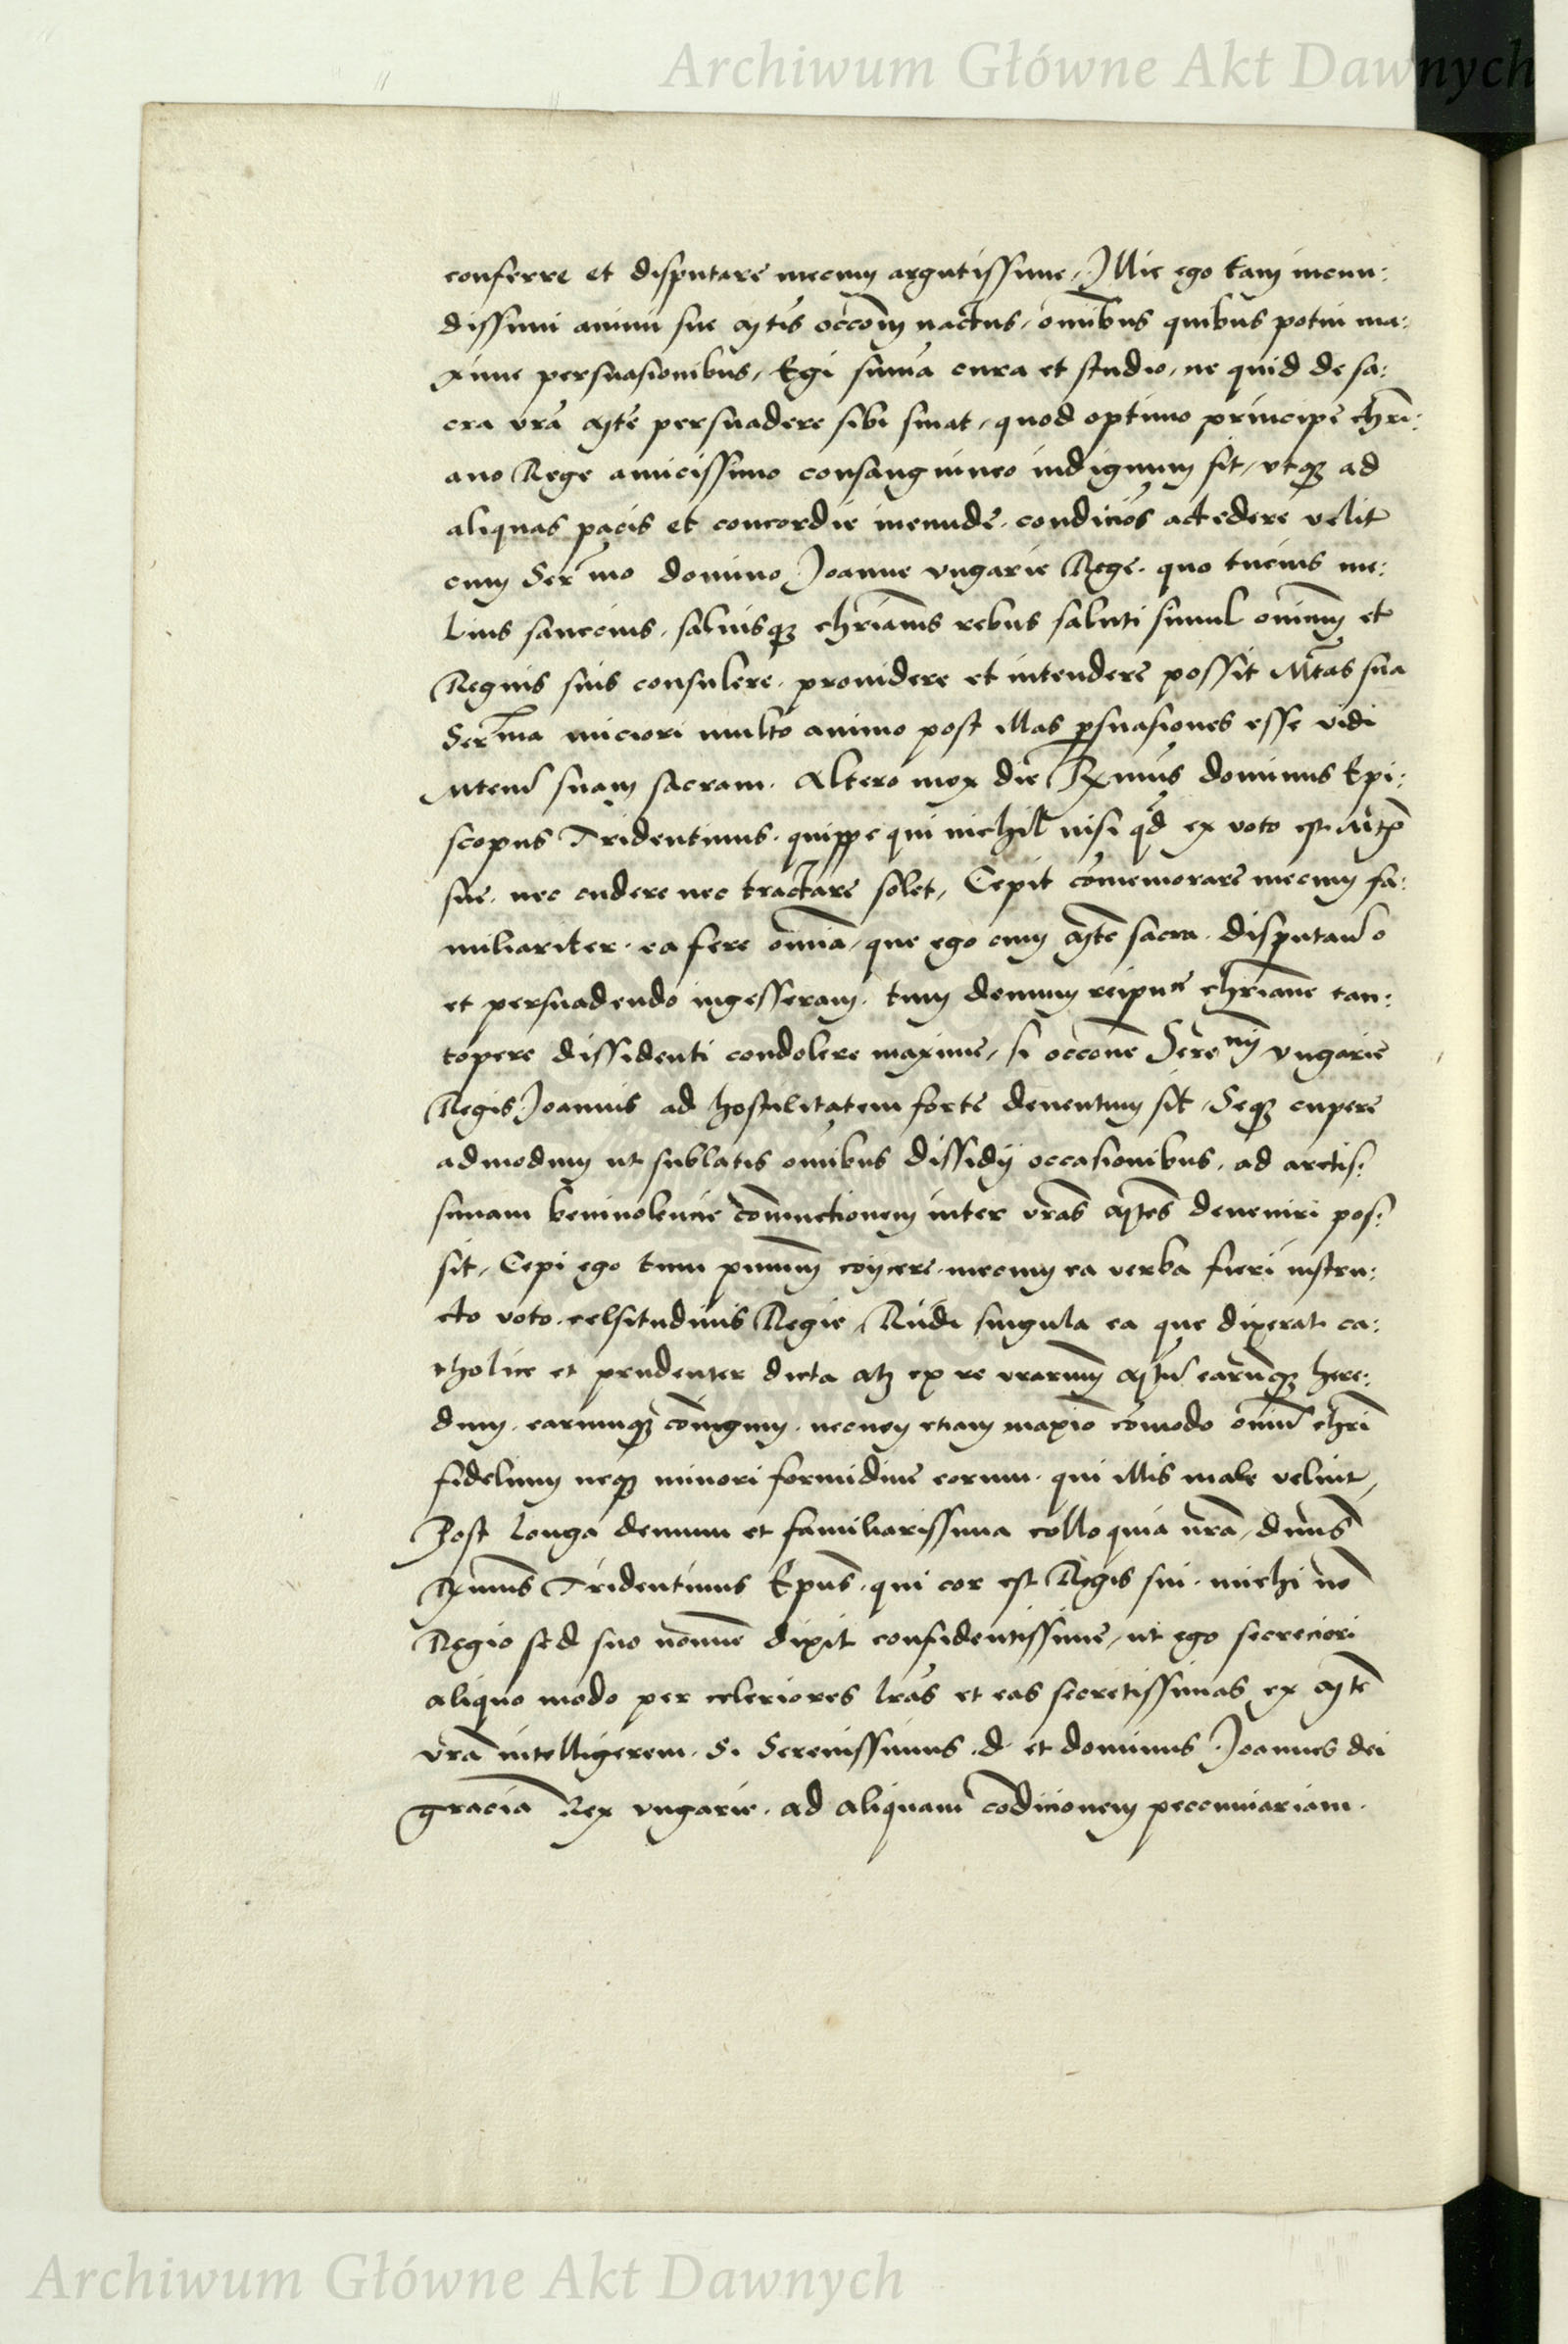 Archiwum Główne Akt Dawnych
conferre et disputare mecum argutissime, Illic ego tam iucun:
dissimi animi sue mtis occom̄ nactus, om̄ibus quibus potui ma:
xime persuasionibus, Egi sum̄a cura et studio, ne quid de sa:
cra vrā mte persuadere sibi sinat, quod optimo principe chri:
ano Rege amicissimo consanguineo indignum sit, vtqz ad
aliquas pacis et concordie ineunde condicōs accedere velit
cum Serᵐᵒ domino Joanne vngarie Rege. quo tucius me:
lius sanccius, saluisqz chrīanis rebus saluti simul om̄ium et
Regnis suis consulere. prouidere et intendere possit Mtas sua
Serᵐᵃ miciori multo animo post illas p̱suasiones esse vidi
Mtem suam sacram. Altero mox die Rx̄mus dominus Epi:
scopus Tridentinus. quippe qui nichil nisi qd ex voto est Mtis
sue, nec cudere nec tractare solet, Cepit com̄emorare mecum fa:
miliariter. ea fere om̄ia, que ego cum mte sacra. disputando
et persuadendo ingesseram. tum demum reipuᶜᵉ chrīane tan:
topere dissidenti condolere maxime, si occone Sereᵐⁱ vngarie
Regis Joannis ad hostilitatem forte deuentum sit, Seqz cupere
admodum ut sublatis om̄ibus dissidij occasionibus, ad arctis:
simam beniuolencie coniunctionem inter vrās mtes deueniri pos:
sit, Cepi ego tum pmum coijcere. mecum ea verba fieri instru:
cto voto celsitudinis Regie, Audi singula ea que dixerat ca:
tholice et prudenter dicta atqz ex re vrarum mtum earumqz here:
dum. earumqz coniugum. necnon etiam maxio com̄odo om̄iu chri
fidelium neqz minori formidine eorum. qui illis male velint,
Post longa demum et familiarissima colloquia nrā, dnus
Rx̄mus Tridentinus Epus, qui cor est Regis sui. michi no
Regio sed suo nomine dixit confidentissime, ut ego secreciori
aliquo modo per celeriores lrās et eas secretissimas ex mte
vrā intelligerem. Si Serenissimus d. et dominus Joannes dei
gracia Rex vngarie. ad aliquam codicionem peccuniariam.
Archiwum Główne Akt Dawnych